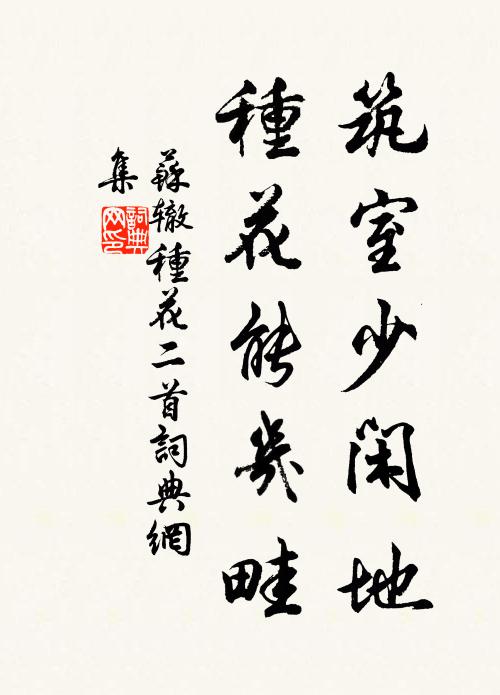 筑室少閑地
種花能幾畦
蘇辙種花二首詞典網
集
詞典
网印